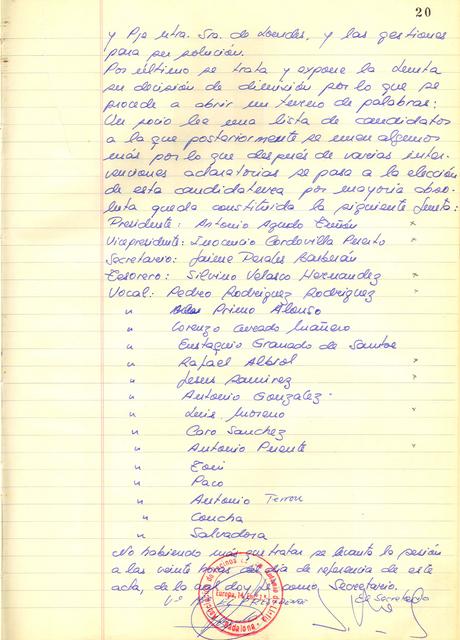 20
y Pje ntra. Sra. de Lourdes, y las gestiones
para su solución.
Por último se trata y expone la Junta
su decisión de dimisión por lo que se
procede a abrir un terreno de palabras:
Un socio lee una lista de candidatos
a la que posteriormente se unen algunos
más por lo que después de varias inter-
venciones aclaratorias se pasa a la elección
de esta candidatura por mayoría abso-
luta queda constituida la siguiente Junta:
Presidente: Antonio Agudo
Vicepresidente: Inocencio Cordovilla Puerto
Secretario: Jaime Perales Barberán
Tesorero: Silvino Velasco Hernandez
Vocal: Pedro Rodriguez Rodriguez
" Primo Alonso
" Lorenzo
" Eustaquio Granado de Santos
" Rafael Albiol
" Jesus Ramirez
" Antonio Gonzalez
" Luis Moreno
" Caro Sanchez
" Antonio Puente
" Toni
" Paco
" Antonio Terron
" Concha
" Salvadora
No habiendo más que tratar se levanta la sesión
a las veinte horas del día de referencia de este
acta, de lo cual doy fe como Secretario.
Vº EL PRESIDENTE El Secretario
Badalona